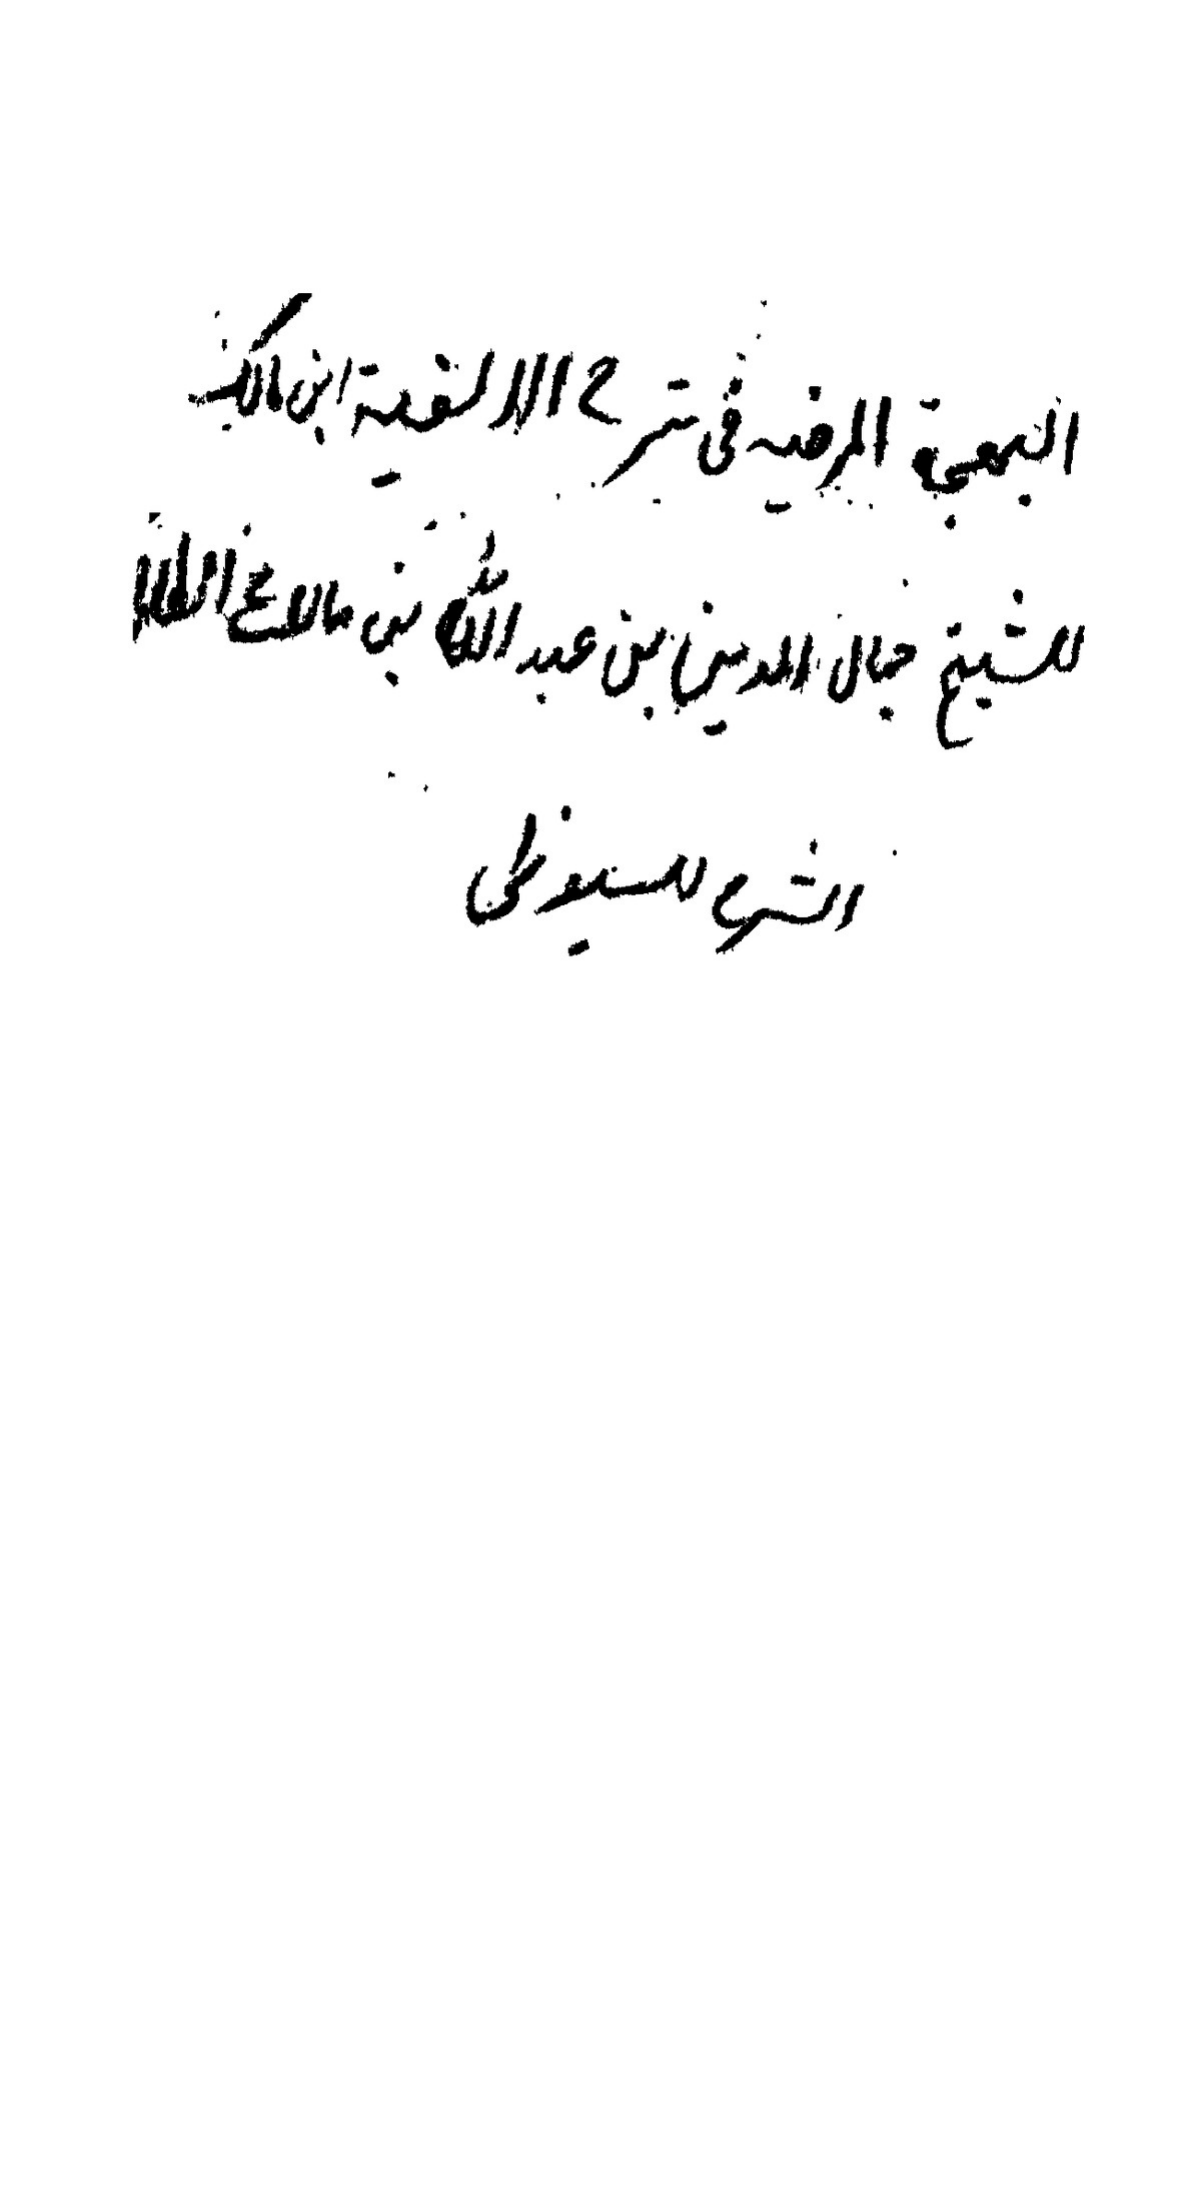 البهجة المرضيه فى شرح الالفية ابن مالك
للشيخ جمال الدين بن عبد الله بن مالك
الشرح للسيوطى